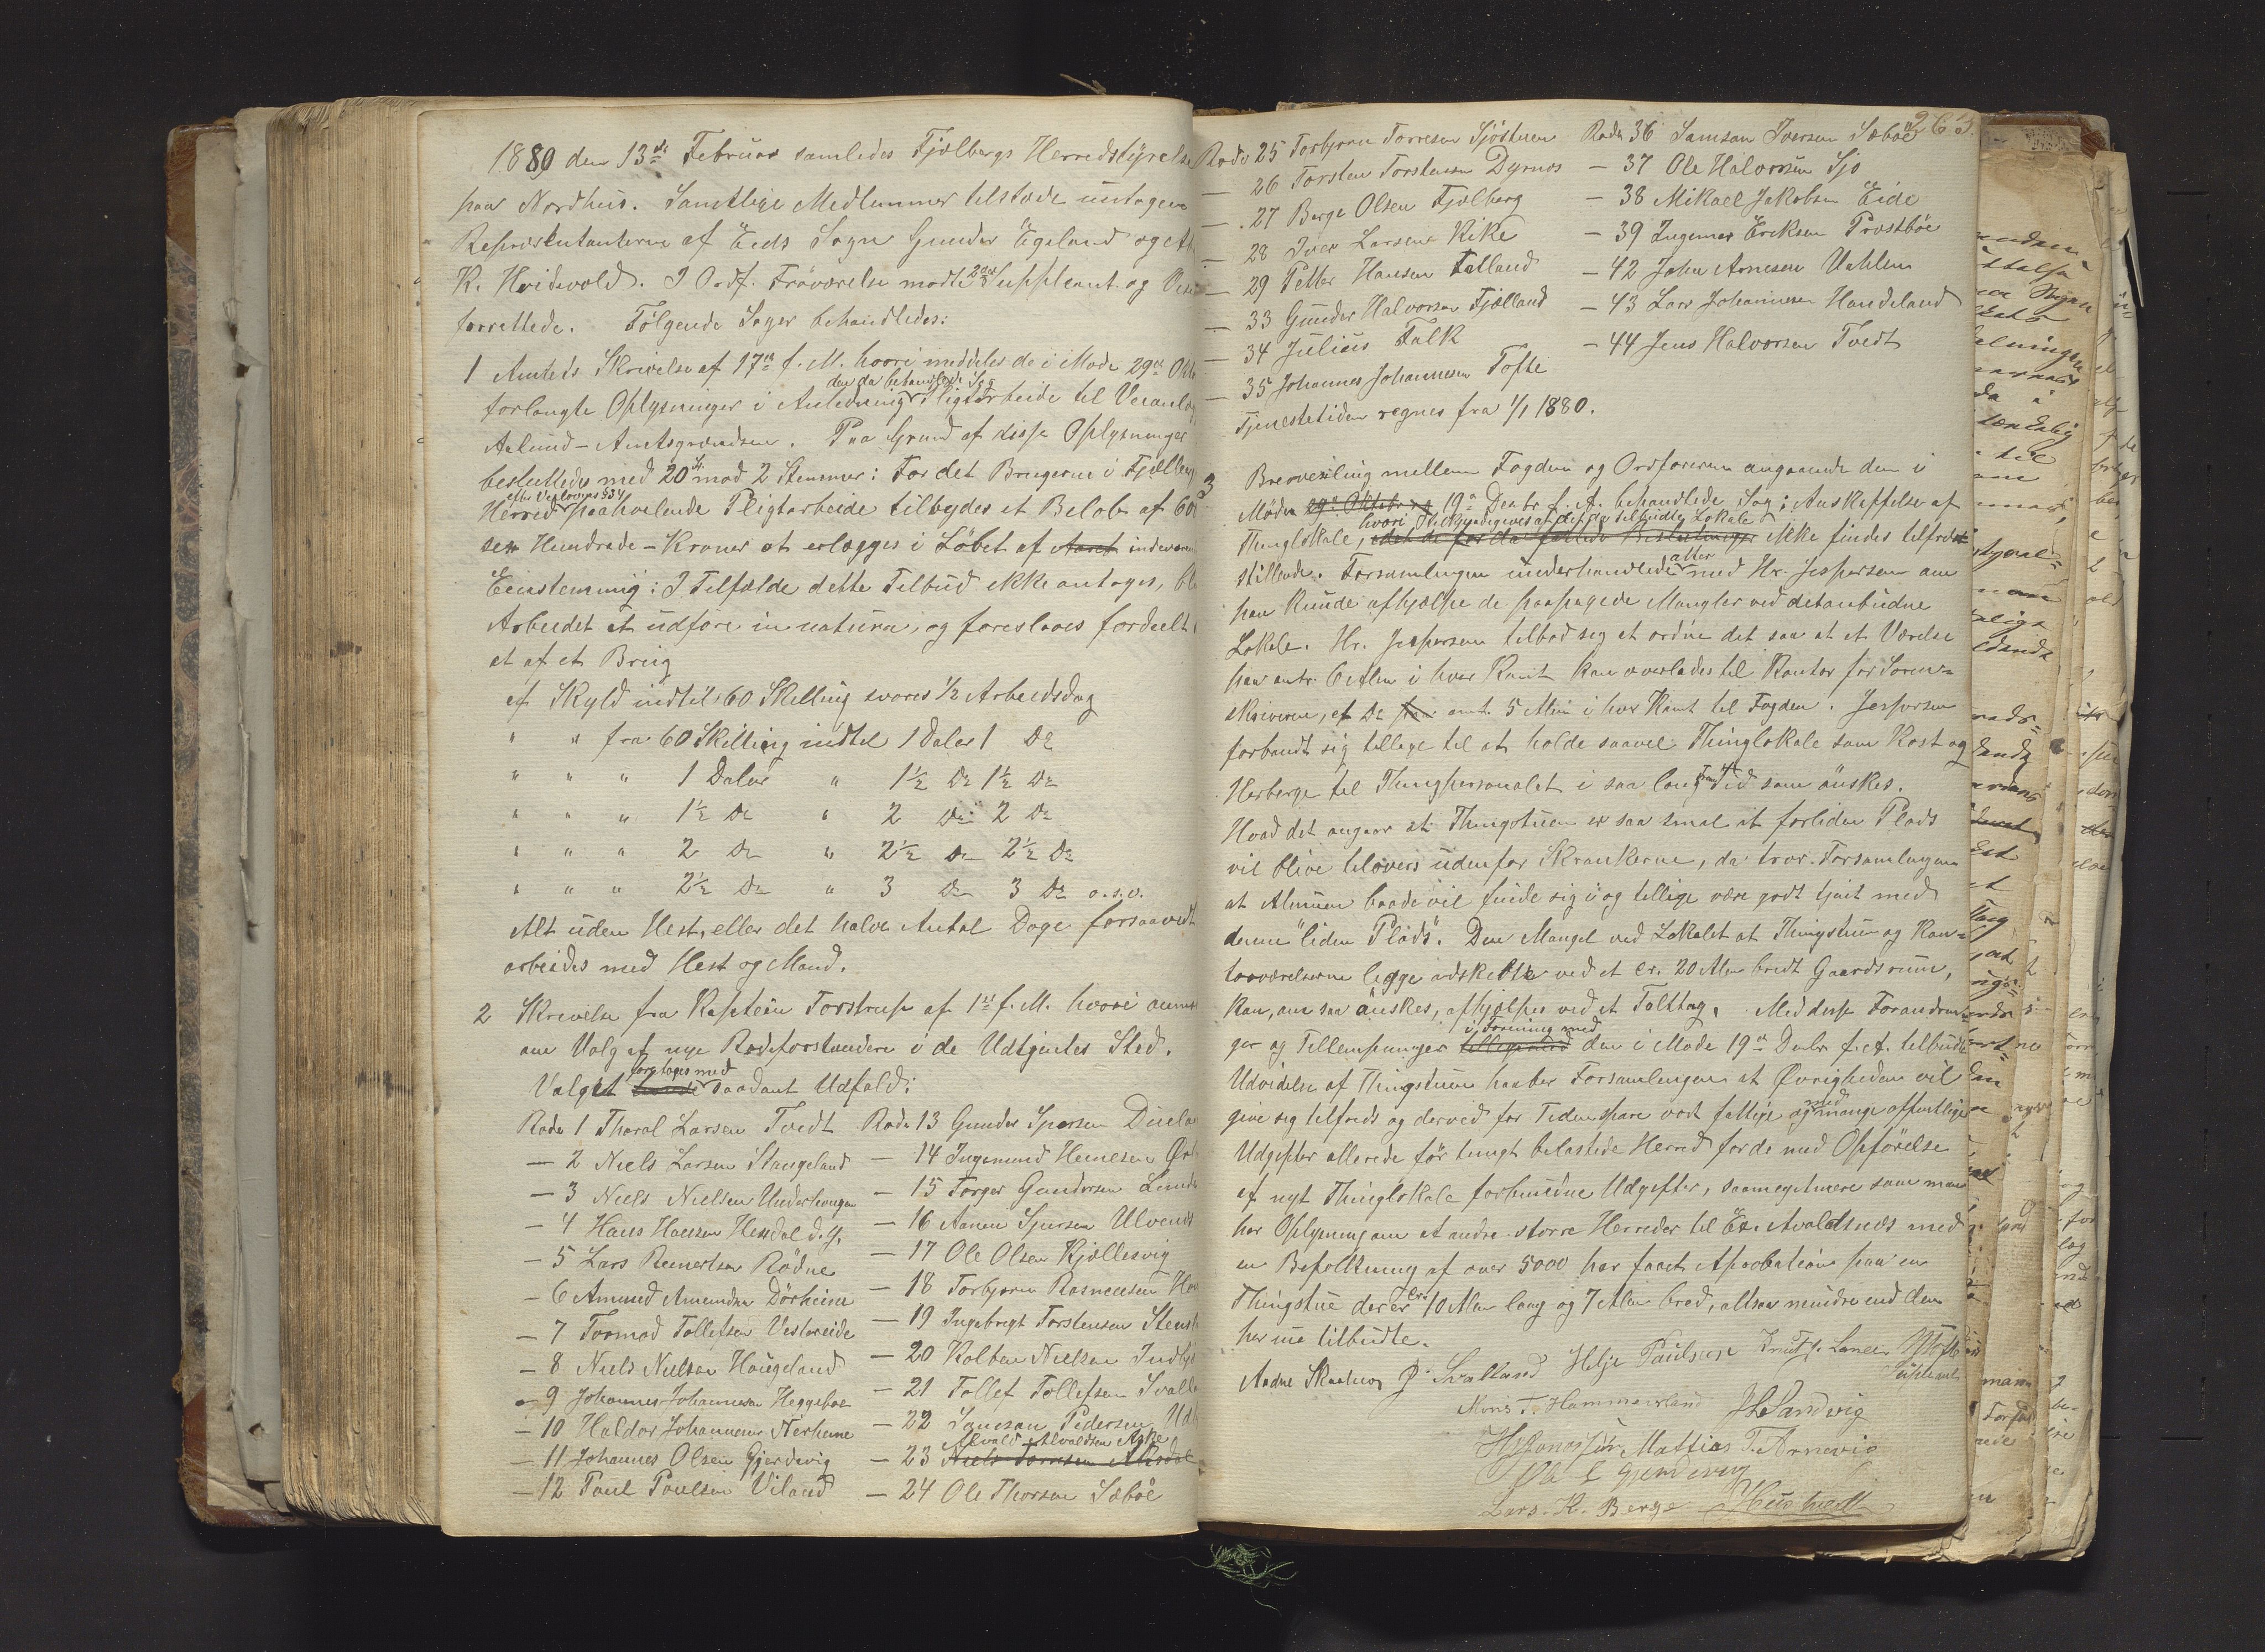 1880 den 13de Februar samledes Fjelbergs Herredstyrelse
paa Nordhus. Samtlige Medlemmer tilstede untagen
Repræsentanterne af Eids Sogn Gunder Egeland og
K. Hvidevold. I Ordf. Fraværelse mødte 2den Suppleant og
forrettede. Følgende Sager behandledes:
1 Amtets Skrivelse af 17de f. M. hvori meddeles de i Møde 29de
forlangte Oplysninger i Anledning den da behandlede Sag Pligtarbeide til
Aalund-Amtsgrændsen. Paa Grund af disse Oplysninger
besluttedes med 20 St. mod 2 Stemmer: For det Brugerne i Fjelberg
Herred efter Veglovens §34 paahvilende Pligtarbeide tilbydes et Beløb af 600
sex Hundrede-Kroner at erlægges i Løbet af Aaret
Eenstemmig: I Tilfælde dette Tilbud ikke antages,
Arbeidet at udføre in natura, og foreslaaes fordeelt
at af et Brug
af Skyld indtil 60 Skilling svares ½ Arbeidsdag
" " fra 60 Skilling indtil 1 Daler 1 Do
" " " 1 Daler " 1½ Do 1½ Do
" " " 1½ Do " 2 Do 2 Do
" " " 2 Do " 2½ Do 2½ Do
" " " 2½ Do " 3 Do 3 Do o.s.v.
Alt uden Hest, eller det halve Antal Dage forsaavidt
arbeides med Hest og Mand.
2 Skrivelse fra Kaptein Torstrup af 1st f. M. hvori
om Valg af nye Rodeforstandere i de Udtjentes Sted.
Valget foretoges med saadant Udfald:
Rode 1 Tharal Larsen Tvedt
— 2 Niels Larsen Stangeland
— 3 Niels Nielsen Underhaugen
— 4 Hans Hansen Hesdal d.y.
— 5 Lars Reinertsen Rødne
— 6 Amund Amundsen Dörheim
— 7 Tormod Tollefsen Vestereide
— 8 Niels Nielsen Haugeland
— 9 Johannes Johannesen Heggebøe
— 10 Haldor Johannesen Nerheim
— 11 Johannes Olsen Gjerdevig
— 12 Paul Paulsen Viland
Rode 13 Gunder Iversen
— 14 Ingemund Hemesen
— 15 Torger Gundersen
— 16 Aanen Sjursen
— 17 Ole Olsen Kjællesvig
— 18 Torbjørn Rasmussen
— 19 Ingebregt Torstensen
— 20 Kolben Nielsen
— 21 Tollef Tollefsen
— 22 Samson Pedersen
— 23 Niels Tormesen Alvald Alvaldsen Aske
— 24 Ole Thorsen Sæbøe
263.
Rode 25 Torbjørn Torresen Sjøstuen
— 26 Torsten Torstensen Dyrnes
— 27 Børge Olsen Fjelberg
— 28 Iver Larsen Kike
— 29 Petter Hansen Fatland
— 33 Gunder Halvorsen Fjelland
— 34 Julius Falk
— 35 Johannes Johannesen Tofte
Rode 36 Samson Iversen Sæbøe
— 37 Ole Halvorsen Sjo
— 38 Mikael Jakobsen Eide
— 39 Ingemar Eriksen Prostbøe
— 42 John Arnesen Vahlen
— 43 Lars Johannesen Handeland
— 44 Jens Halvorsen Tvedt
Tjenestetiden regnes fra 1/1 1880.
3 Brevvexling mellem Fogden og Ordføreren angaaende den i
Møden 29de Oktober og 19de Decbr f. A. behandlede Sag: Anskaffelse af
Thinglokale, hvori tilkjendegives at det da tilbudte Lokale ikke findes tilfreds-
stillende. Forsamlingen underhandlede atter med Hr. Jespersen om
han kunde afhjælpe de paapegede Mangler ved det anbudne
Lokale. Hr. Jespersen tilbød seg at ordne det saa at et Værelse
paa omtr. 6 Alen i hver Kant kan overlades til Kontor for Soren-
skriveren, et Do paa omt. 5 Alen i hver Kant til Fogden. Jespersen
forbandt sig tillige til at holde saavel Thinglokale som Kost og
Herberge til Thingpersonalet i saa lang Tid som ønskes.
Hvad det angaar at Thingstuen er saa smal at forliden Plads
vil blive tilovers udenfor Skrankerne, da tror Forsamlingen
at Almuen baade vil finde sig i og tillige være godt tjent med
denne "liden Plads". Den Mangel ved Lokalet at Thingstue og Kon-
torværelserne ligge adskilte ved et cr. 20 Alen bredt Gaardsrum,
kan, om saa ønskes, afhjælpes ved et Telttag. Med disse Forandrin-
ger og Tillempninger i Forening med den i Møde 19de Decbr. f. A. tilbudte
Udvidelse af Thingstuen haaber Forsamlingen at Øvrigheden vil
give sig tilfreds og derved for Tiden spare vort fattige og med mange offentlige
Udgifter allerede før tungt belastede Herred for de med Opførelse
af nyt Thinglokale forbundne Udgifter, saameget mere som man
har Oplysning om at andre større Herreder til Ex. Avaldsnæs med
en Befolkning af over 5000 har faaet Aprobation paa en
Thingstue der er cr. 10 Alen lang og 7 Alen bred, altsaa mindre end den
her nu tilbudte.
Aadne Skaalnes Svalland Helje Paulsen Knut J. Lunde
Supleant
Mons T. Hammersland Sandvig
Mattias T. Arnevig
Ole E Gjerdevig
Lars. K. Berge